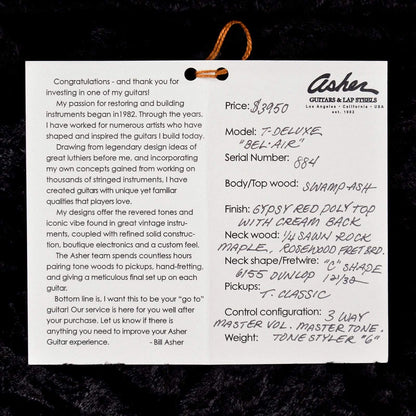 Congratulations - and thank you for
investing in one of my guitars!
My passion for restoring and building
instruments began in1982. Through the years.
I have worked for numerous artists who have
shaped and inspired the guitars I build today.
Drawing from legendary design ideas of
great luthiers before me, and incorporating
my own concepts gained from working on
thousands of stringed instruments, I have
created guitars with unique yet familiar
qualities that players love.
My designs offer the revered tones and
iconic vibe found in great vintage instru-
ments, coupled with refined solid construc-
tion, boutique electronics and a custom feel.
The Asher team spends countless hours
pairing tone woods to pickups, hand-fretting,
and giving a meticulous final set up on each
guitar.
Bottom line is, I want this to be your "go to"
guitar! Our service is here for you well after
your purchase. Let us know if there is
anything you need to improve your Asher
Guitar experience. - Bill Asher
Asher
GUITARS & LAP STEELS
Los Angeles - California - USA
est. 1982
Price: $3950
Model: T-DELUXE
"BEL-AIR"
Serial Number: 884
Body/Top wood: SWAMP-ASH
Finish: GYPSY RED POLY TOP
WITH CREAM BACK
Neck wood: 1/4 SAWN ROCK
MAPLE, ROSEWOOD FRETBRD.
Neck shape/Fretwire: "C" SHAPE
6155 DUNLOP
Pickups:
T. CLASSIC
Control configuration: 3 WAY
MASTER VOL. MASTER TONE.
Weight: TONE STYLER "G"